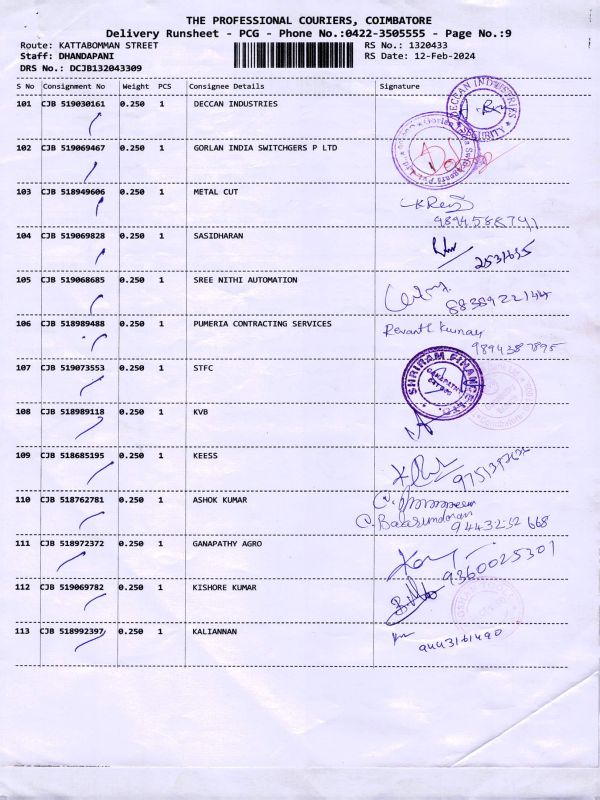 THE PROFESSIONAL COURIERS, COIMBATORE
Delivery Runsheet - PCG - Phone No.:0422-3505555 - Page No.:9
Route: KATTABOMMAN STREET RS No.: 1320433
Staff: DHANDAPANI RS Date: 12-Feb-2024
DRS No.: DCJB132043309
S No Consignment No Weight PCS Consignee Details Signature
101 CJB 519030161 0.250 1 DECCAN INDUSTRIES
DECCAN INDUSTRIES SECURITY
102 CJB 519069467 0.250 1 GORLAN INDIA SWITCHGERS P LTD
103 CJB 518949606 0.250 1 METAL CUT
9894588791
104 CJB 519069828 0.250 1 SASIDHARAN
105 CJB 519068685 0.250 1 SREE NITHI AUTOMATION
8838922144
106 CJB 518989488 0.250 1 PUMERIA CONTRACTING SERVICES Revanth Kumar
9894387895
107 CJB 519073553 0.250 1 STFC
SHRIRAM FINANCE LTD
GANAPATHY
108 CJB 518989118 0.250 1 KVB
109 CJB 518685195 0.250 1 KEESS
110 CJB 518762781 0.250 1 ASHOK KUMAR
9443232668
111 CJB 518972372 0.250 1 GANAPATHY AGRO
9360025301
112 CJB 519069782 0.250 1 KISHORE KUMAR
113 CJB 518992397 0.250 1 KALIANNAN
9443161490